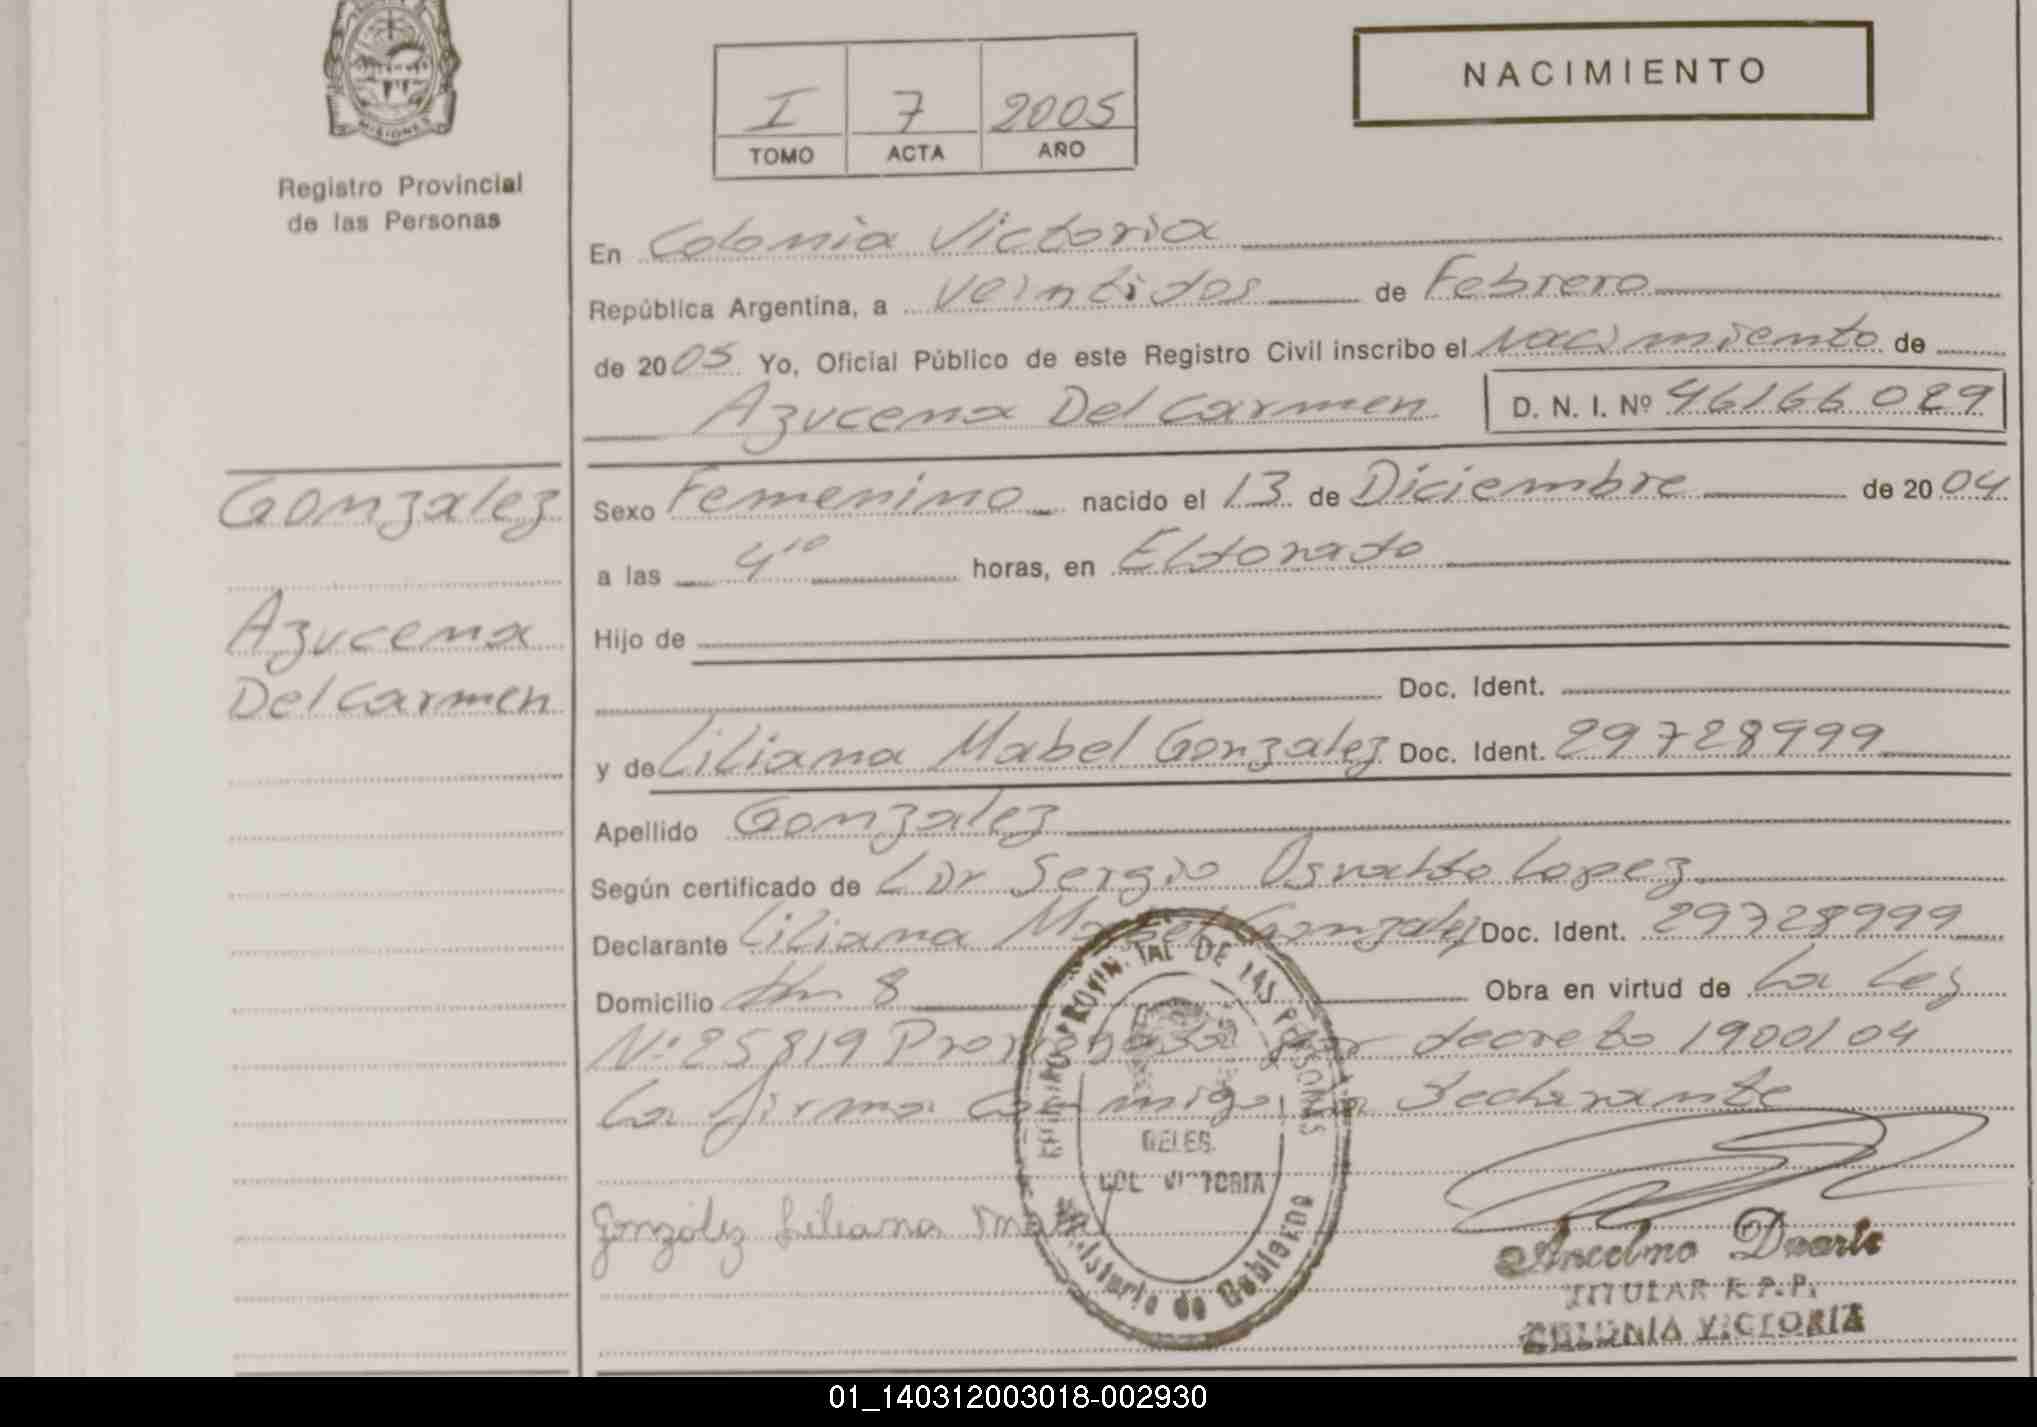 MISIONES
Registro Provincial
de las Personas
I 7 2005
TOMO ACTA AÑO
NACIMIENTO
En Colonia Victoria
República Argentina, a veintidos de Febrero
de 2005 Yo, Oficial Público de este Registro Civil inscribo el Nacimiento de
Azucena Del Carmen D. N. I. Nº 46166029
Gonzalez
Azucena
Del Carmen
Sexo Femenino nacido el 13 de Diciembre de 2004
a las 4¹⁰ horas, en Eldorado
Hijo de
Doc. Ident.
y de Liliana Mabel Gonzalez Doc. Ident. 29728999
Apellido Gonzalez
Según certificado de Sergio Osvaldo Lopez
Declarante Liliana Mabel Gonzalez Doc. Ident. 29728999
Domicilio Km 8 Obra en virtud de La Ley
Nº 25819 por decreto 1900/04
La firma conmigo la declarante
Gonzélez Liliana
REGISTRO PROVINCIAL DE LAS PERSONAS
COL VICTORIA
Ministerio de Gobierno
Ancelmo Duarte
TITULAR R.P.P.
COLONIA VICTORIA
01_140312003018-002930